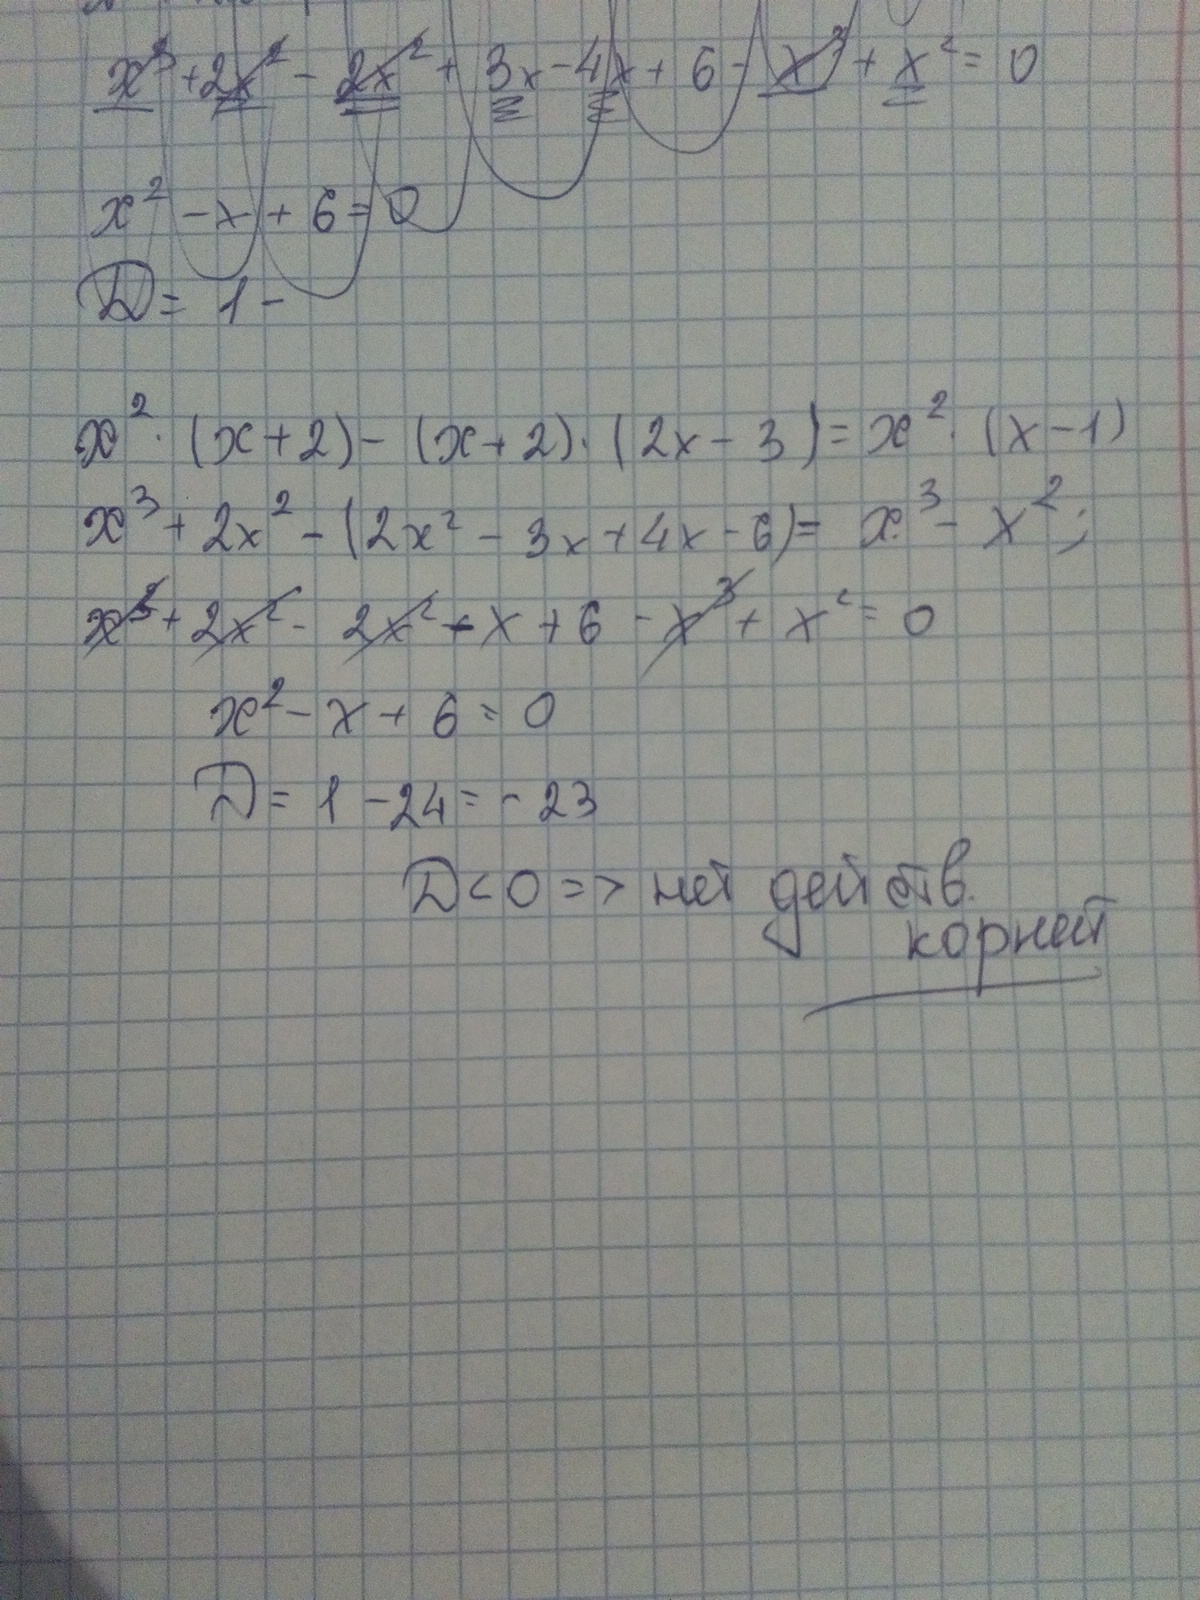 x³ + 2x² - 2x² + 3x - 4x + 6 - x³ + x² = 0
x² - x + 6 = 0
D = 1 -
x² · (x + 2) - (x + 2) · (2x - 3) = x² · (x - 1)
x³ + 2x² - (2x² - 3x + 4x - 6) = x³ - x²;
x³ + 2x² - 2x² - x + 6 - x³ + x² = 0
x² - x + 6 = 0
D = 1 - 24 = - 23
D < 0 => нет действ.
корней